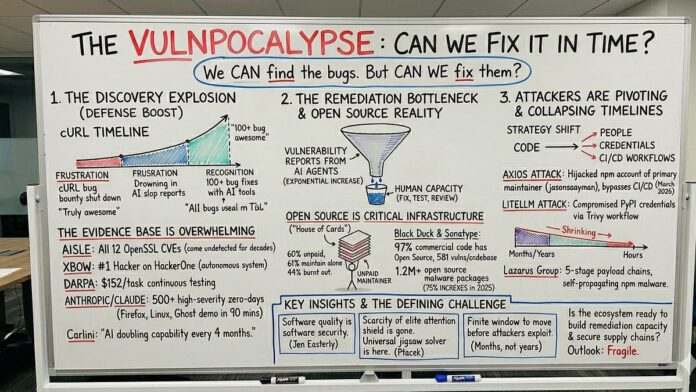 THE VULNPOCALYPSE: CAN WE FIX IT IN TIME?
We CAN find the bugs. But CAN WE fix them?
1. THE DISCOVERY EXPLOSION
(DEFENSE BOOST)
CURL TIMELINE
"100+ bug
awesome"
FRUSTRATION
cURL bug
bounty shut down
"Truly awesome"
FRUSRATION
Drowning in
AI slop reports
RECOGNITION
100+ bug fixes
with AI tools
THE EVIDENCE BASE IS OVERWHELMING
AISLE: All 12 OpenSSL CVEs (come undetected for decades)
XBOW: #1 Hacker on HackerOne (autonomous system)
DARPA: $152/task continuous testing
ANTHROPIC/CLAUDE: 500+ high-severity zero-days
(Firefox, Linux, Ghost demo in 90 mins)
Carlini: "AI doubling capability every 4 months."
2. THE REMEDIATION BOTTLENECK
& OPEN SOURCE REALITY
VULNERABILITY
REPORTS FROM
AI AGENTS
(EXPONENTIAL INCREASE)
HUMAN CAPACITY
(FIX, TEST, REVIEW)
OPEN SOURCE IS CRITICAL INFRASTRUCTURE
("House of Cards")
60% unpaid,
61% maintain alone
44% burnt out.
UNPAID
MAINTAINER
Black Duck & Sonatype:
97% commercial code has
Open Source, 581 vulns/codebase
1.2M+ open source
malware packages
(75% INCREXES IN 2025)
3. ATTACKERS ARE PIVOTING
& COLLAPSING TIMELINES
STRATEGY SHIFT
CODE
PEOPLE
CREDENTIALS
CI/CD WORKFLOWS
AXIOS ATTACK: Hijacked npm account of primary
maintainer (jasonsaayman), bypasses CI/CD (March
2026)
LITELLM ATTACK: Compromised PyPI credentials
via Trivy workflow
Shrinking
Months/Years
Hours
Lazarus Group: 5-stage payload chains,
self-propagating npm malware.
KEY INSIGHTS & THE DEFINING CHALLENGE
Software quality is
software security.
(Jen Easterly)
Scarcity of elite attention
shield is gone.
Universal jigsaw solver
is here. (Ptacek)
Finite window to move
before attackers exploit.
(Months, not years)
Is the ecosystem ready to
build remediation capacity
& secure supply chains?
Outlook: Fragile.